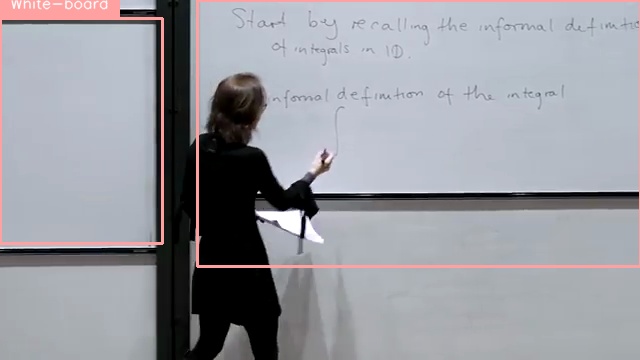 White-board
Start by recalling the informal definitio
of integrals in 1D.
nformal definition of the integral
∫